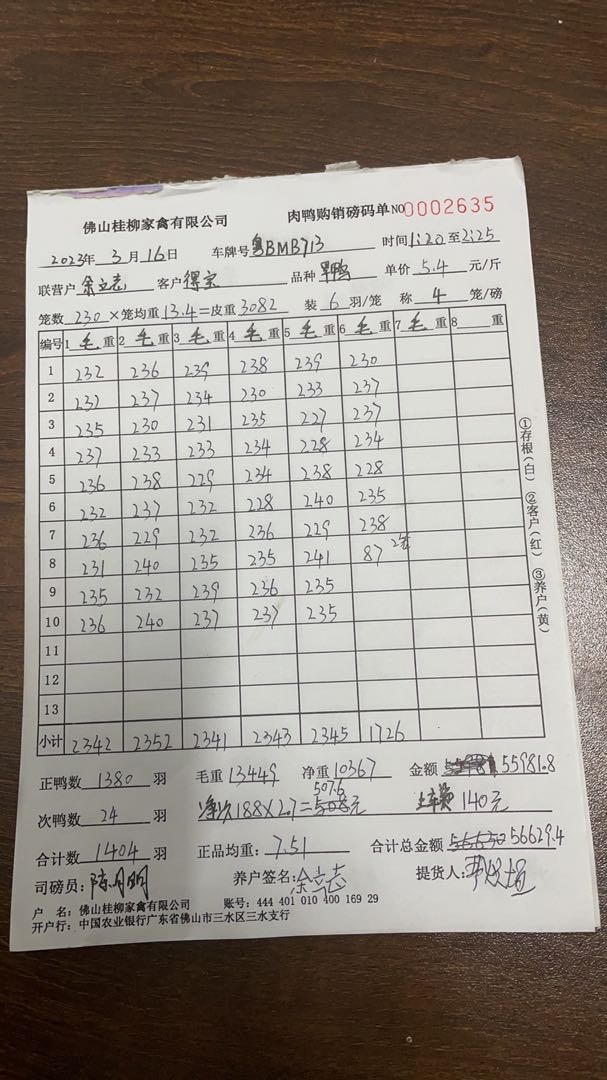 佛山桂柳家禽有限公司 肉鸭购销磅码单 NO 0002635
2023年 3月 16日 车牌号 粤BMB713 时间 1:20 至 2:25
联营户 余立志 客户 得宝 品种 单价 5.4 元/斤
笼数 230 ×笼均重 13.4 =皮重 3082 装 6 羽/笼 称 4 笼/磅
编号 1 毛 重 2 毛 重 3 毛 重 4 毛 重 5 毛 重 6 毛 重 7 毛 重 8 重
1 232 236 239 238 239 230
2 232 237 234 230 233 237
3 235 230 231 235 227 237
4 237 233 233 234 228 234
5 236 238 229 234 238 228
6 232 237 232 228 240 235
7 236 229 232 236 229 238
8 231 240 235 235 241 87 2笼
9 235 232 239 236 235
10 236 240 237 237 235
11
12
13
小计 2342 2352 2341 2343 2345 1726
①存根(白) ②客户(红) ③养户(黄)
正鸭数 1380 羽 毛重 13449 净重 10367 金额 55981.8
507.6
次鸭数 24 羽 188×2.7= 元 140元
合计数 1404 羽 正品均重: 7.51 合计总金额 56629.4
司磅员: 陈月明 养户签名: 余立志 提货人:
户 名: 佛山桂柳家禽有限公司 账号: 444 401 010 400 169 29
开户行: 中国农业银行广东省佛山市三水区三水支行